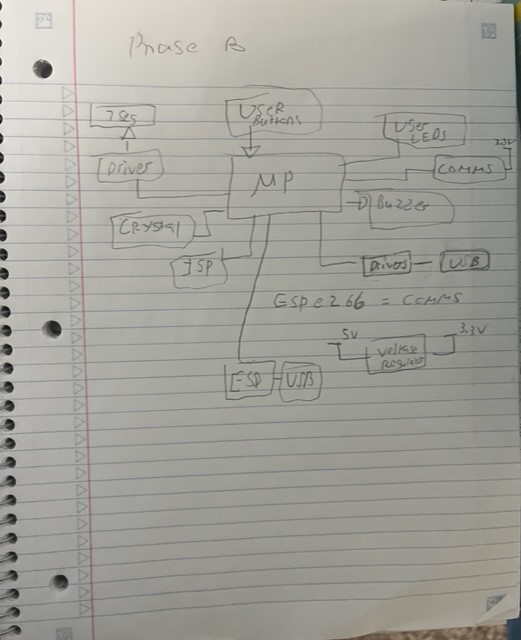 Phase B
7Seg
USER
Buttons
User
LEDs
3.3V
Driver
MP
COMMS
Buzzer
CRystal
ISP
Driver
USB
ESP8266 = COMMS
5V
3.3V
Voltage
Regulator
ESP
USB